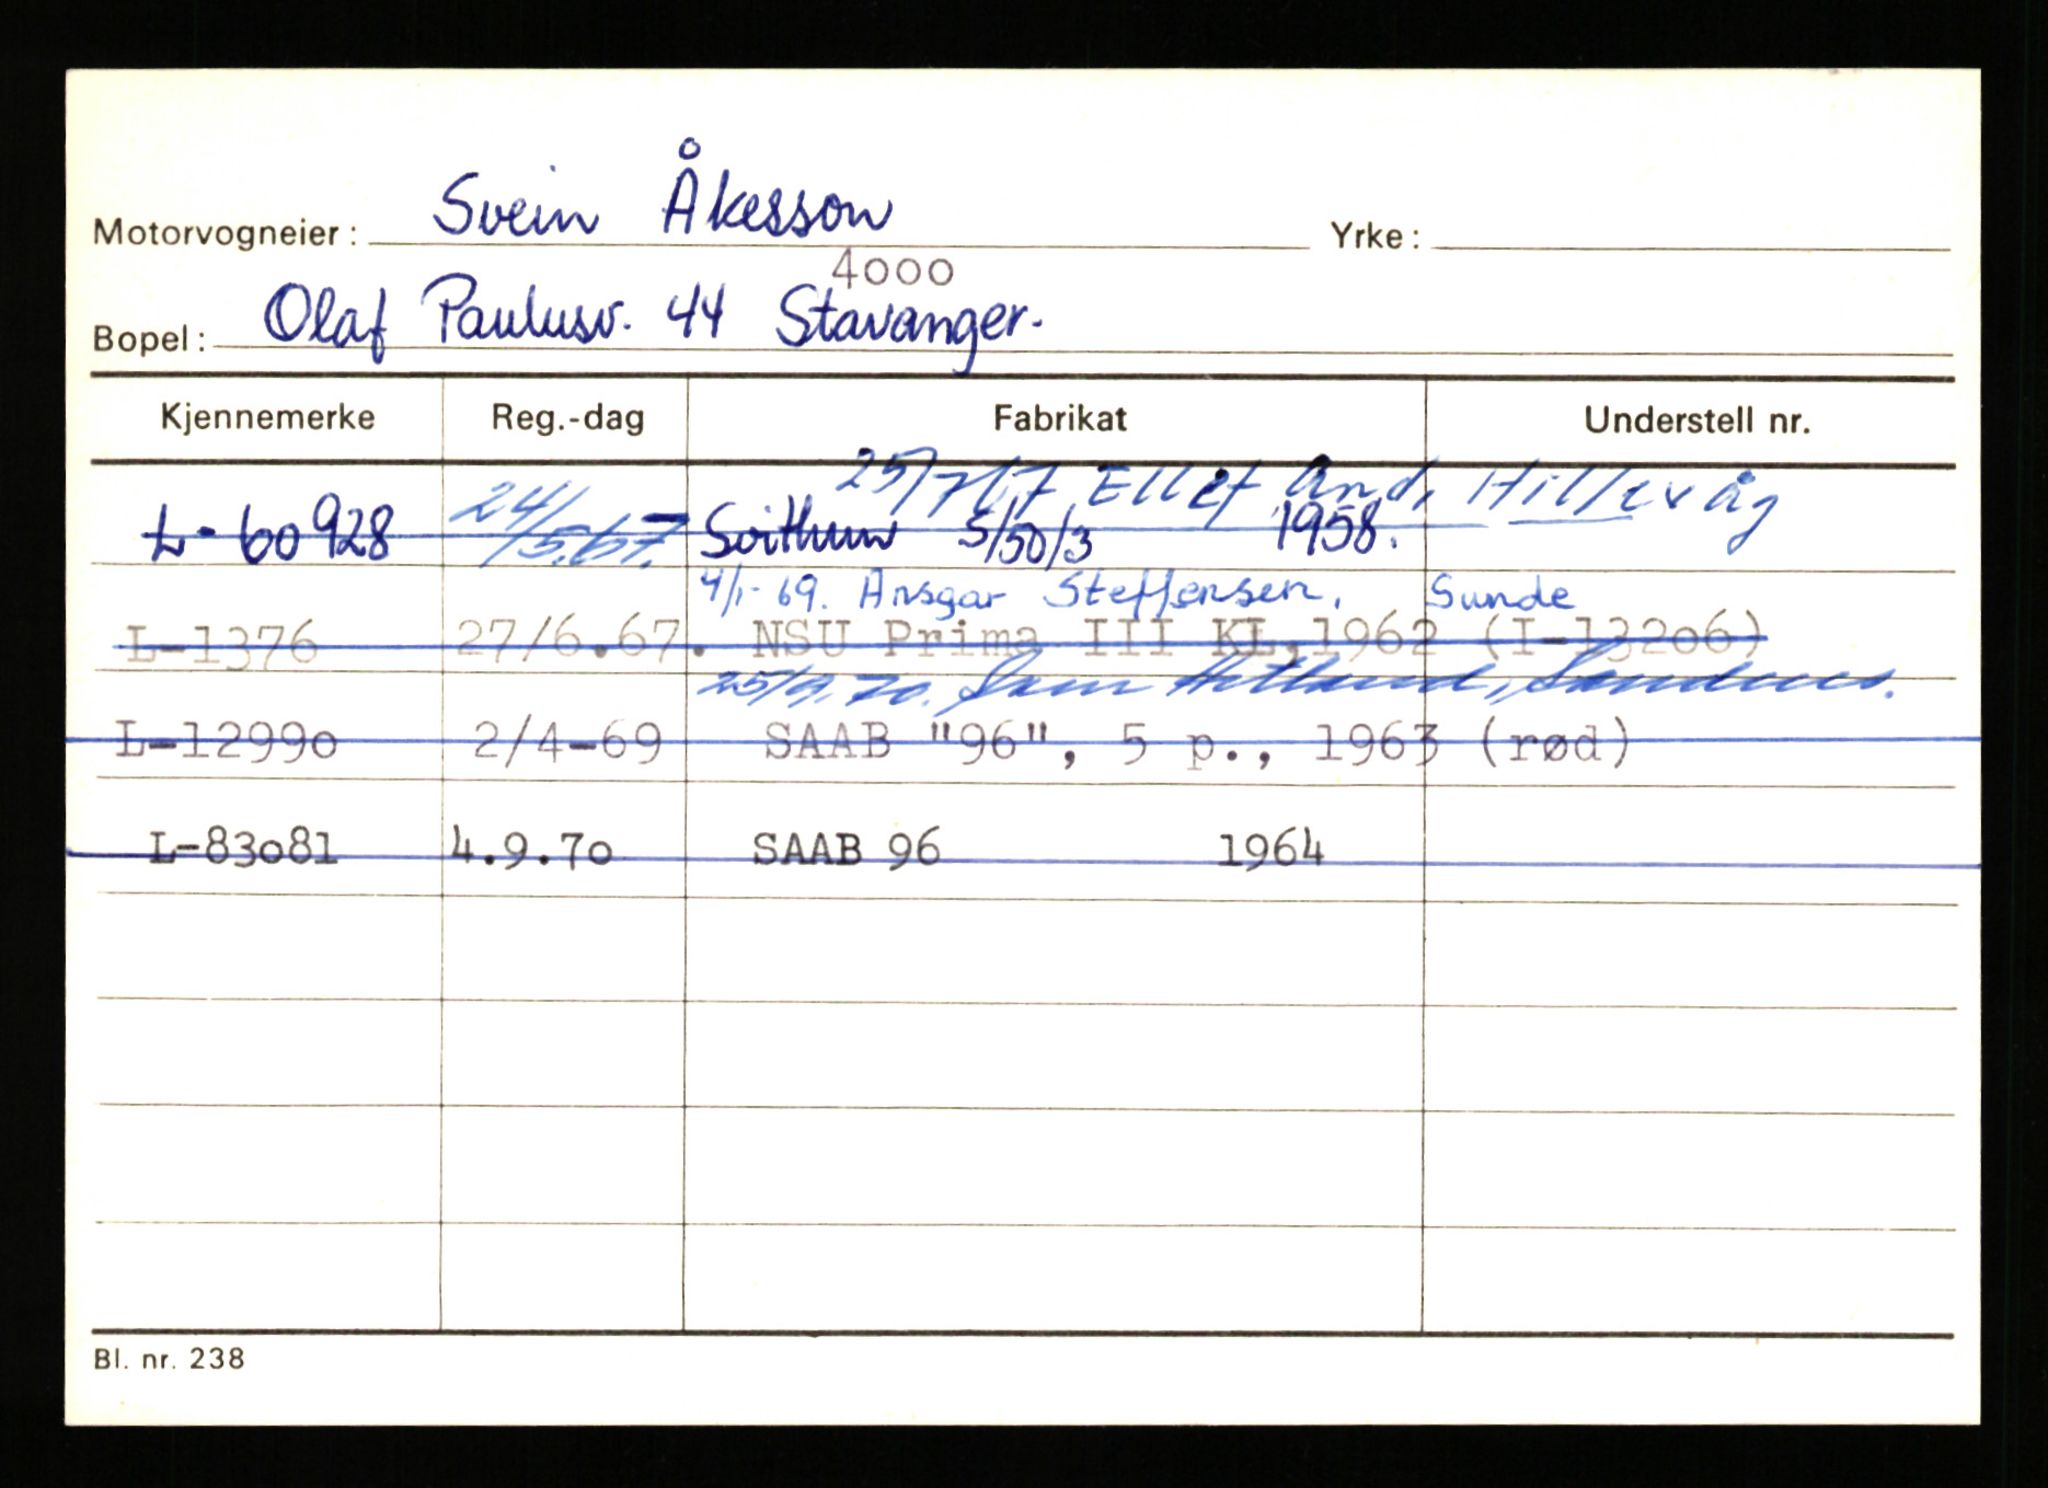 Motorvogneier: Svein Åkesson Yrke:
4000
Bopel: Olaf Paulusv. 44 Stavanger.
Kjennemerke Reg.-dag Fabrikat Understell nr.
25/7 67 And. Hillevåg
L-60928 24/5.67. Svithun 5/50/3 1958.
4/1-69. Ansgar Steffensen, Sunde
L-1376 27/6.67. NSU Prima III KL,1962 (I-13206)
25/9.70. Hetland, Sandnes.
L-12990 2/4-69 SAAB "96", 5 p., 1963 (rød)
L-83081 4.9.70 SAAB 96 1964
Bl. nr. 238